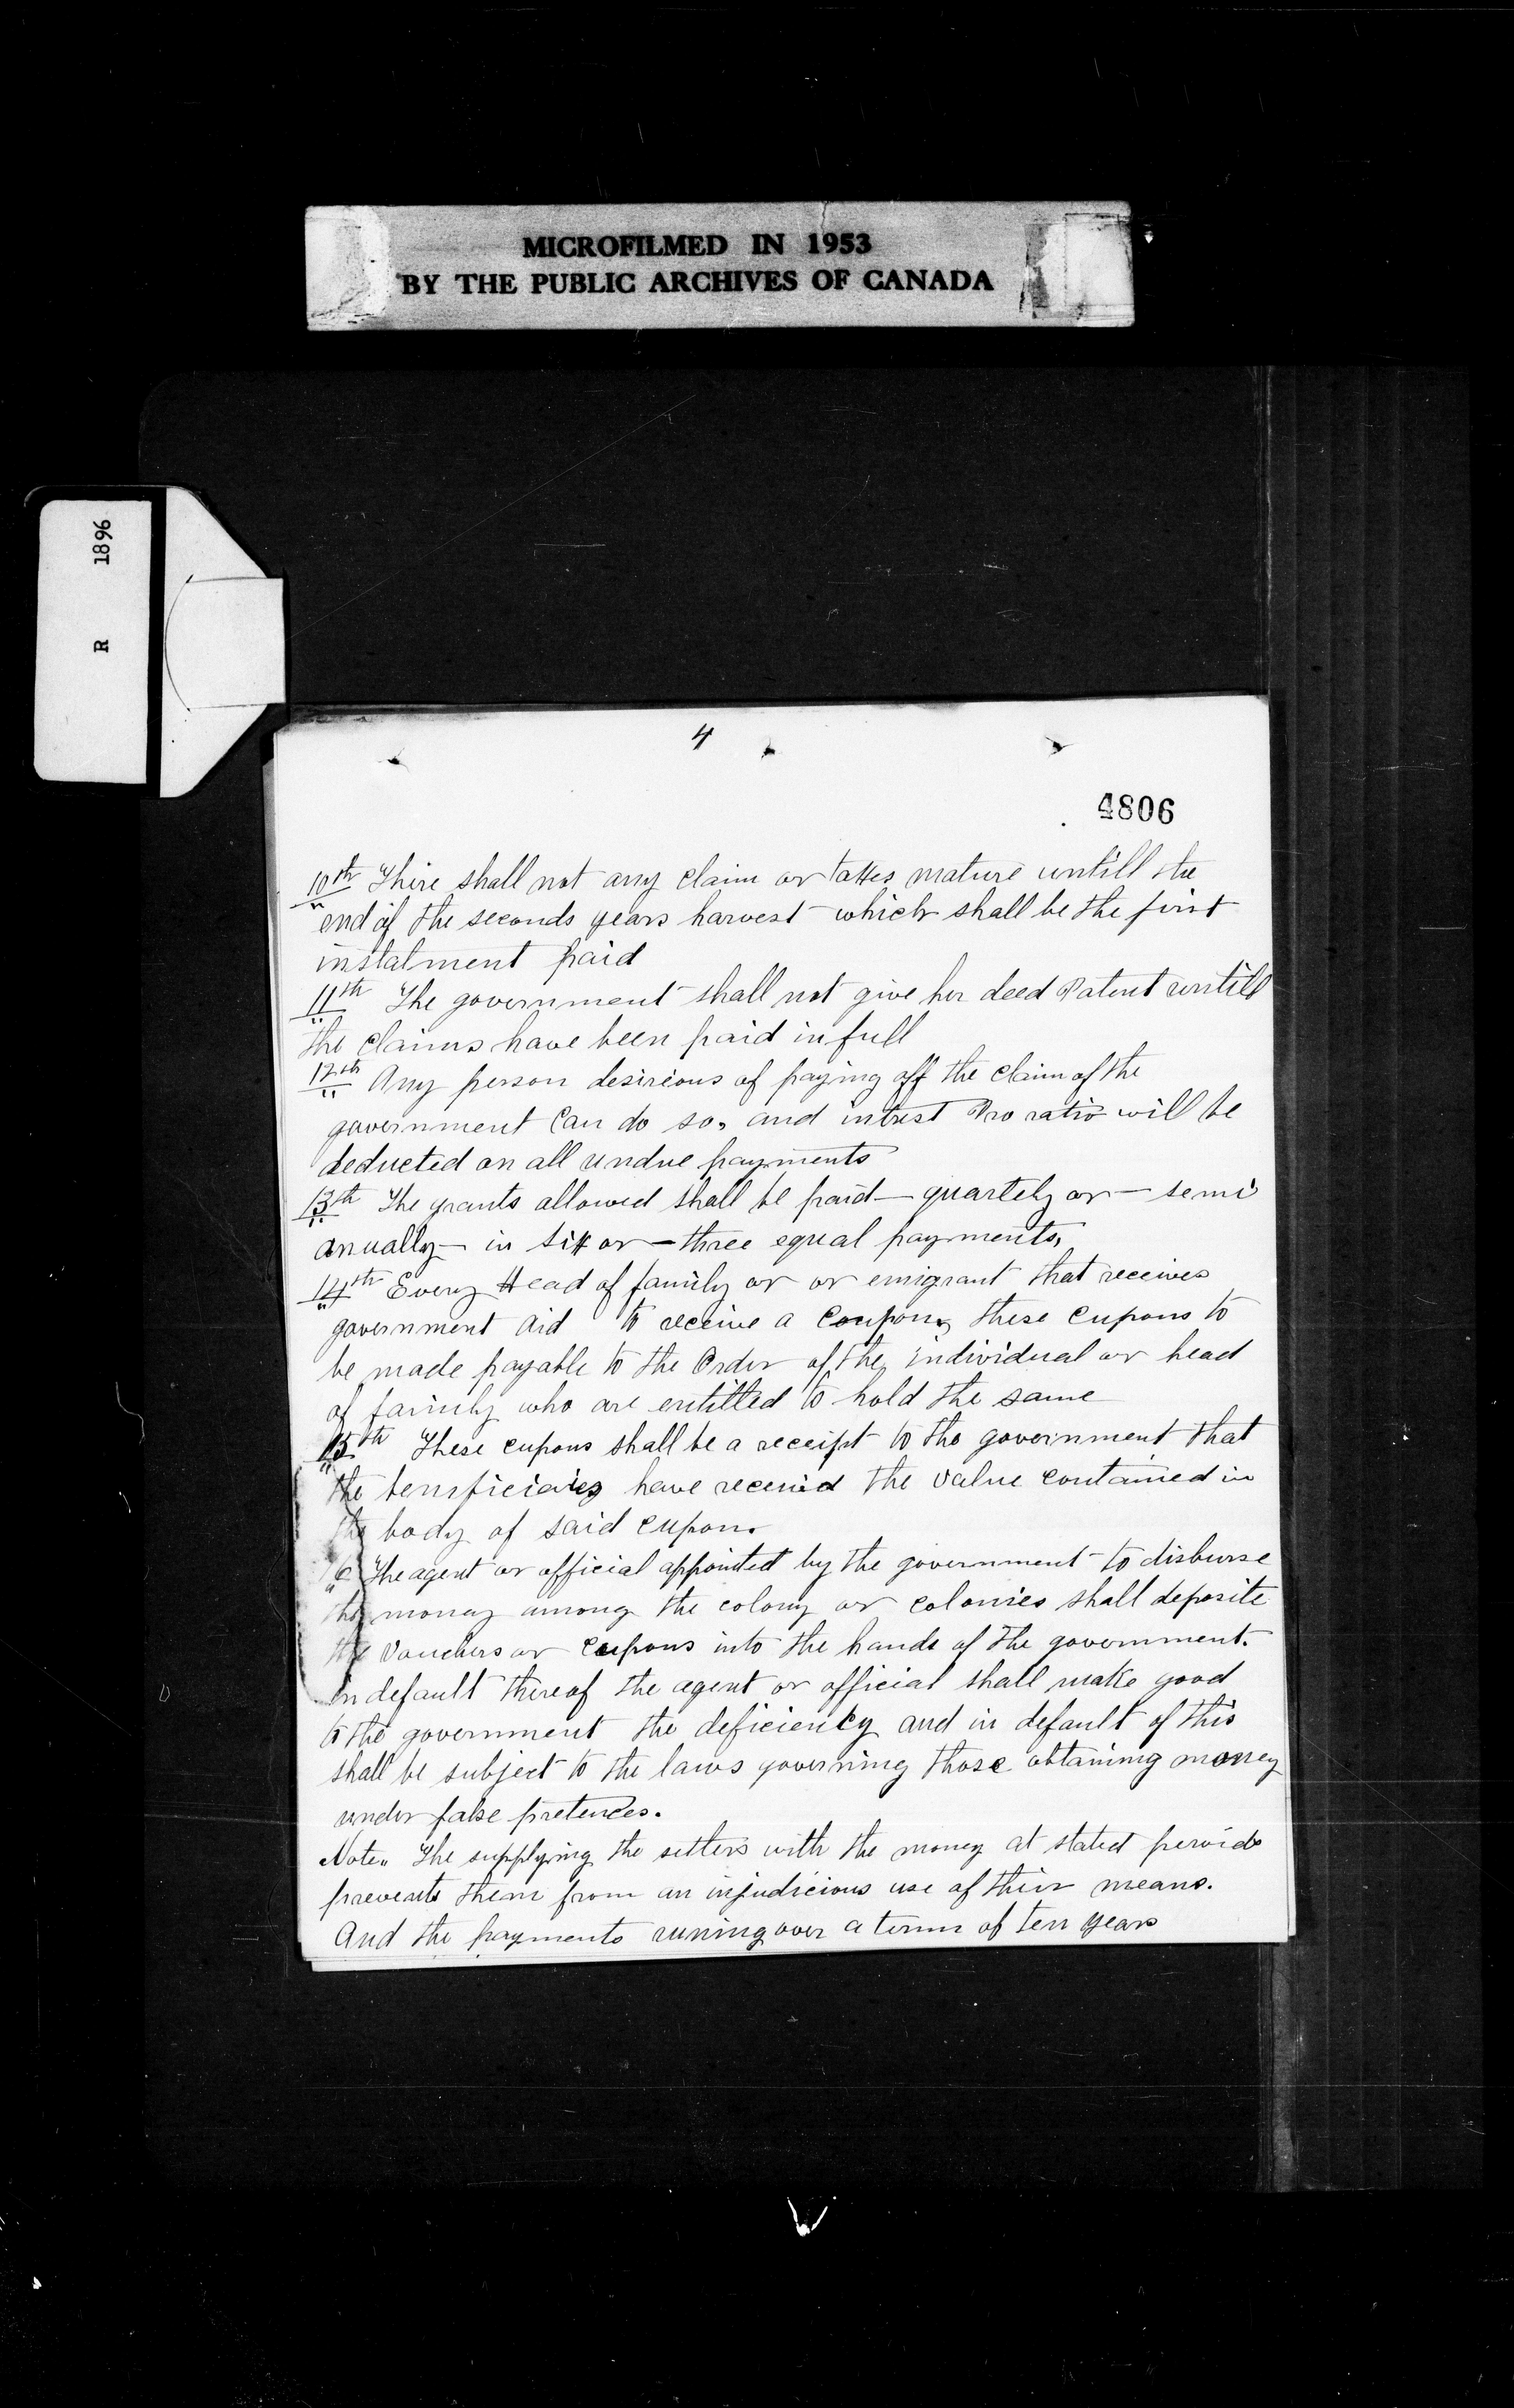 MICROFILMED IN 1953
BY THE PUBLIC ARCHIVES OF CANADA
R 1896
4
4806
10th Thire shall not any claim or taxes mature untill the
end of the seconds years harvest which shall be the first
instalment paid
11th The government shall not give her deed Patent untill
the claims have been paid in full
12th Any person desireous of paying off the claim of the
government Can do so, and intrest Pro ratio will be
deducted on all undue payments
13th The grants allowed shall be paid — quartely or — semi
anually — in six or — three equal payments,
14th Every Head of family or or emigrant that receives
government aid to receive a Coupon, these cupons to
be made payable to the Order of the individual or head
of family who are entitled to hold the same
15th These cupons shall be a receipt to the government that
the benificiaries have received the value contained in
the body of said cupon.
16 The agent or official appointed by the government to disburse
the money among the colony or colonies shall deposite
the vouchers or Coupons into the hands of the government.
In default thereof the agent or official shall make good
to the government the deficiency and in default of this
shall be subject to the laws governing those obtaining money
under false pretences.
Note. The supplying the setters with the money at stated periods
prevents them from an injudicious use of their means.
And the payments runing over a term of ten years